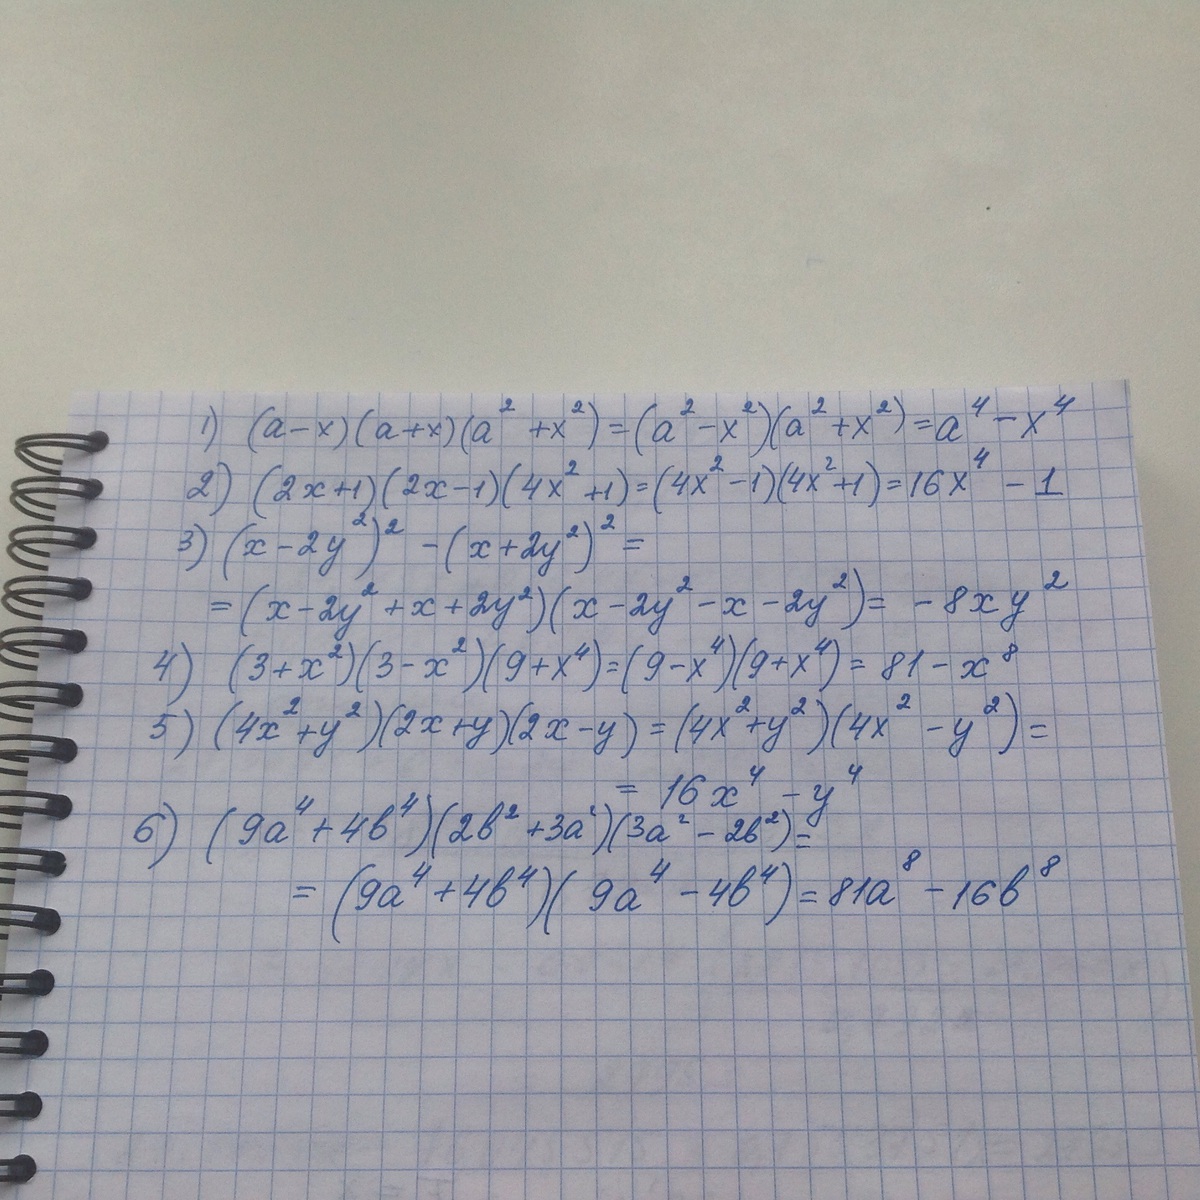 1) (a-x)(a+x)(a²+x²)=(a²-x²)(a²+x²)=a⁴-x⁴
2) (2x+1)(2x-1)(4x²+1)=(4x²-1)(4x²+1)=16x⁴-1
3) (x-2y²)²-(x+2y²)²=
=(x-2y²+x+2y²)(x-2y²-x-2y²)= -8xy²
4) (3+x²)(3-x²)(9+x⁴)=(9-x⁴)(9+x⁴)=81-x⁸
5) (4x²+y²)(2x+y)(2x-y)=(4x²+y²)(4x²-y²)=
=16x⁴-y⁴
6) (9a⁴+4b⁴)(2b²+3a²)(3a²-2b²)=
=(9a⁴+4b⁴)(9a⁴-4b⁴)=81a⁸-16b⁸